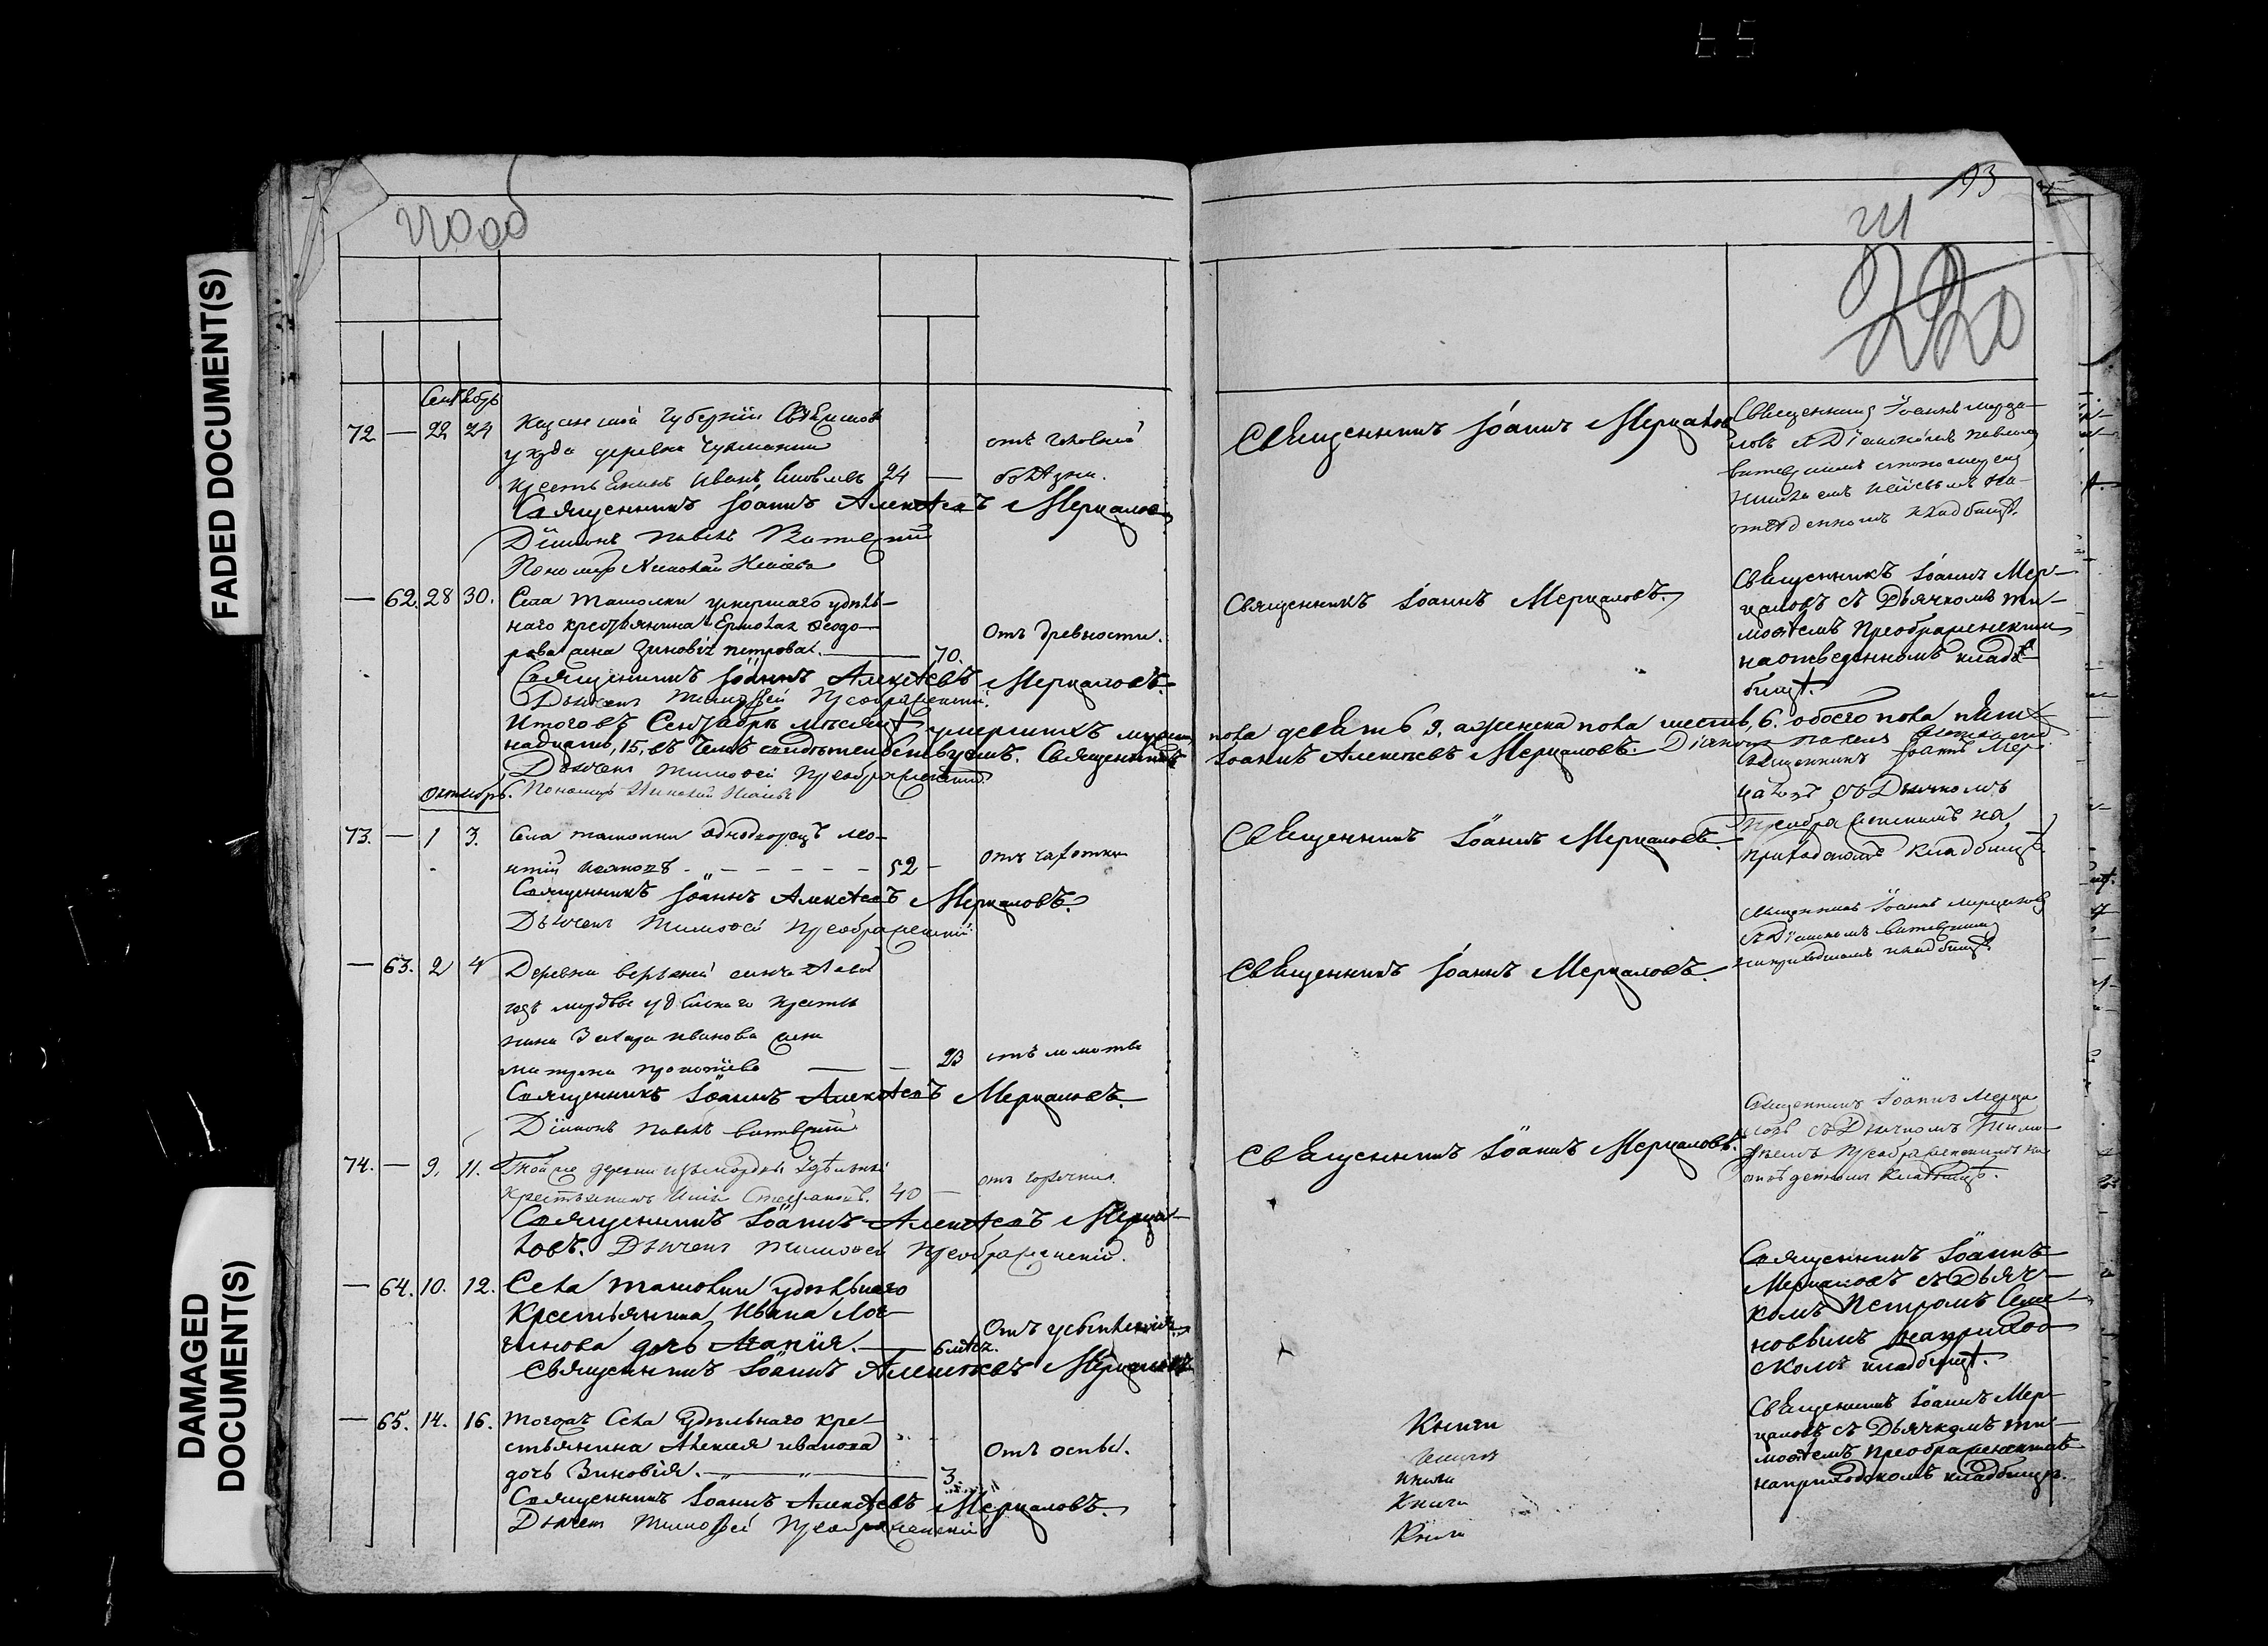 FADED DOCUMENT(S)
DAMAGED
DOCUMENT(S)
93
220
Сентябрь
72 — 22 24
Казанской Губерніи Свіяжскаго
уѣзда деревни
крестьянинъ Иванъ Яковлевъ 24 —
отъ головной
болѣзни.
Священникъ Іоаннъ Алексѣевъ Мерцаловъ
Діаконъ Павелъ
Пономарь Николай
Священникъ Іоаннъ Мерцаловъ
Священникъ Іоаннъ Мерца-
ловъ съ Діакономъ Павломъ
отведенномъ кладбищѣ.
— 62. 28 30.
Села Ташолки умершаго удѣль-
наго крестьянина Ермолая Ѳеодо-
рова жена Зиновія Петрова. — 70.
Отъ древности.
Священникъ Іоаннъ Алексѣевъ Мерцаловъ.
Дьячекъ Тимоѳей Преображенскій.
Священникъ Іоаннъ Мерцаловъ.
Священникъ Іоаннъ Мер-
цаловъ съ Дьячкомъ Ти-
моѳѣемъ Преображенскимъ
на отведенномъ кладъ-
бищѣ.
Итого въ Сентябрѣ мѣсяцѣ умершихъ мужска пола девять 9, а женска пола шесть, 6. обоего пола пят-
надцать, 15, въ чемъ свидѣтельствуемъ. Священникъ Іоаннъ Алексѣевъ Мерцаловъ. Діаконъ Павелъ
Дьячекъ Тимоѳей Преображенскій.
Пономарь Николай
Октябрь.
73. — 1 3.
Села Ташолки однодворецъ Ле-
онтій — 52 —
отъ чахотки
Священникъ Іоаннъ Алексѣевъ Мерцаловъ.
Дьячекъ Тимоѳей Преображенскій
Священникъ Іоаннъ Мерцаловъ.
Священникъ Іоаннъ Мер-
цаловъ съ Дьячкомъ
Преображенскимъ на
приходскомъ кладбищѣ
— 63. 2 4
Деревни верхней
изъ мордвы удѣльнаго крестья-
нина Захара Иванова жена
Матрена — 23
отъ ломоты
Священникъ Іоаннъ Алексѣевъ Мерцаловъ.
Діаконъ Павелъ
Священникъ Іоаннъ Мерцаловъ.
Священникъ Іоаннъ Мерцаловъ
съ Діакономъ
на приходскомъ кладбищѣ
74. — 9. 11.
Той же деревни изъ мордвы Удѣльный
Крестьянинъ Илья Стефановъ. 40 —
отъ горячки
Священникъ Іоаннъ Алексѣевъ Мерца-
ловъ. Дьячекъ Тимоѳей Преображенскій.
Священникъ Іоаннъ Мерцаловъ.
Священникъ Іоаннъ Мерца-
ловъ съ Дьячкомъ Тимо-
ѳеемъ Преображенскимъ на
отведенномъ кладбищѣ.
— 64. 10. 12.
Села Ташолки удѣльнаго
Крестьянина Ивана Лог-
гинова дочь Марія. — 6 мѣс.
Священникъ Іоаннъ Алексѣевъ Мерцаловъ
Священникъ Іоаннъ
Мерцаловъ съ Дьяч-
комъ Петромъ Семе-
новымъ на приход-
скомъ кладбищѣ.
— 65. 14. 16.
Тогожъ Села Удѣльнаго кре-
стьянина Алексея Иванова
дочь Зиновія. — 3.
Отъ оспы.
Священникъ Іоаннъ Алексѣевъ Мерцаловъ.
Дьячекъ Тимоѳей Преображенскій
Священникъ Іоаннъ Мер-
цаловъ съ Дьячкомъ Ти-
моѳѣемъ Преображенскимъ
на приходскомъ кладбищѣ.
Книги
книги
Книги